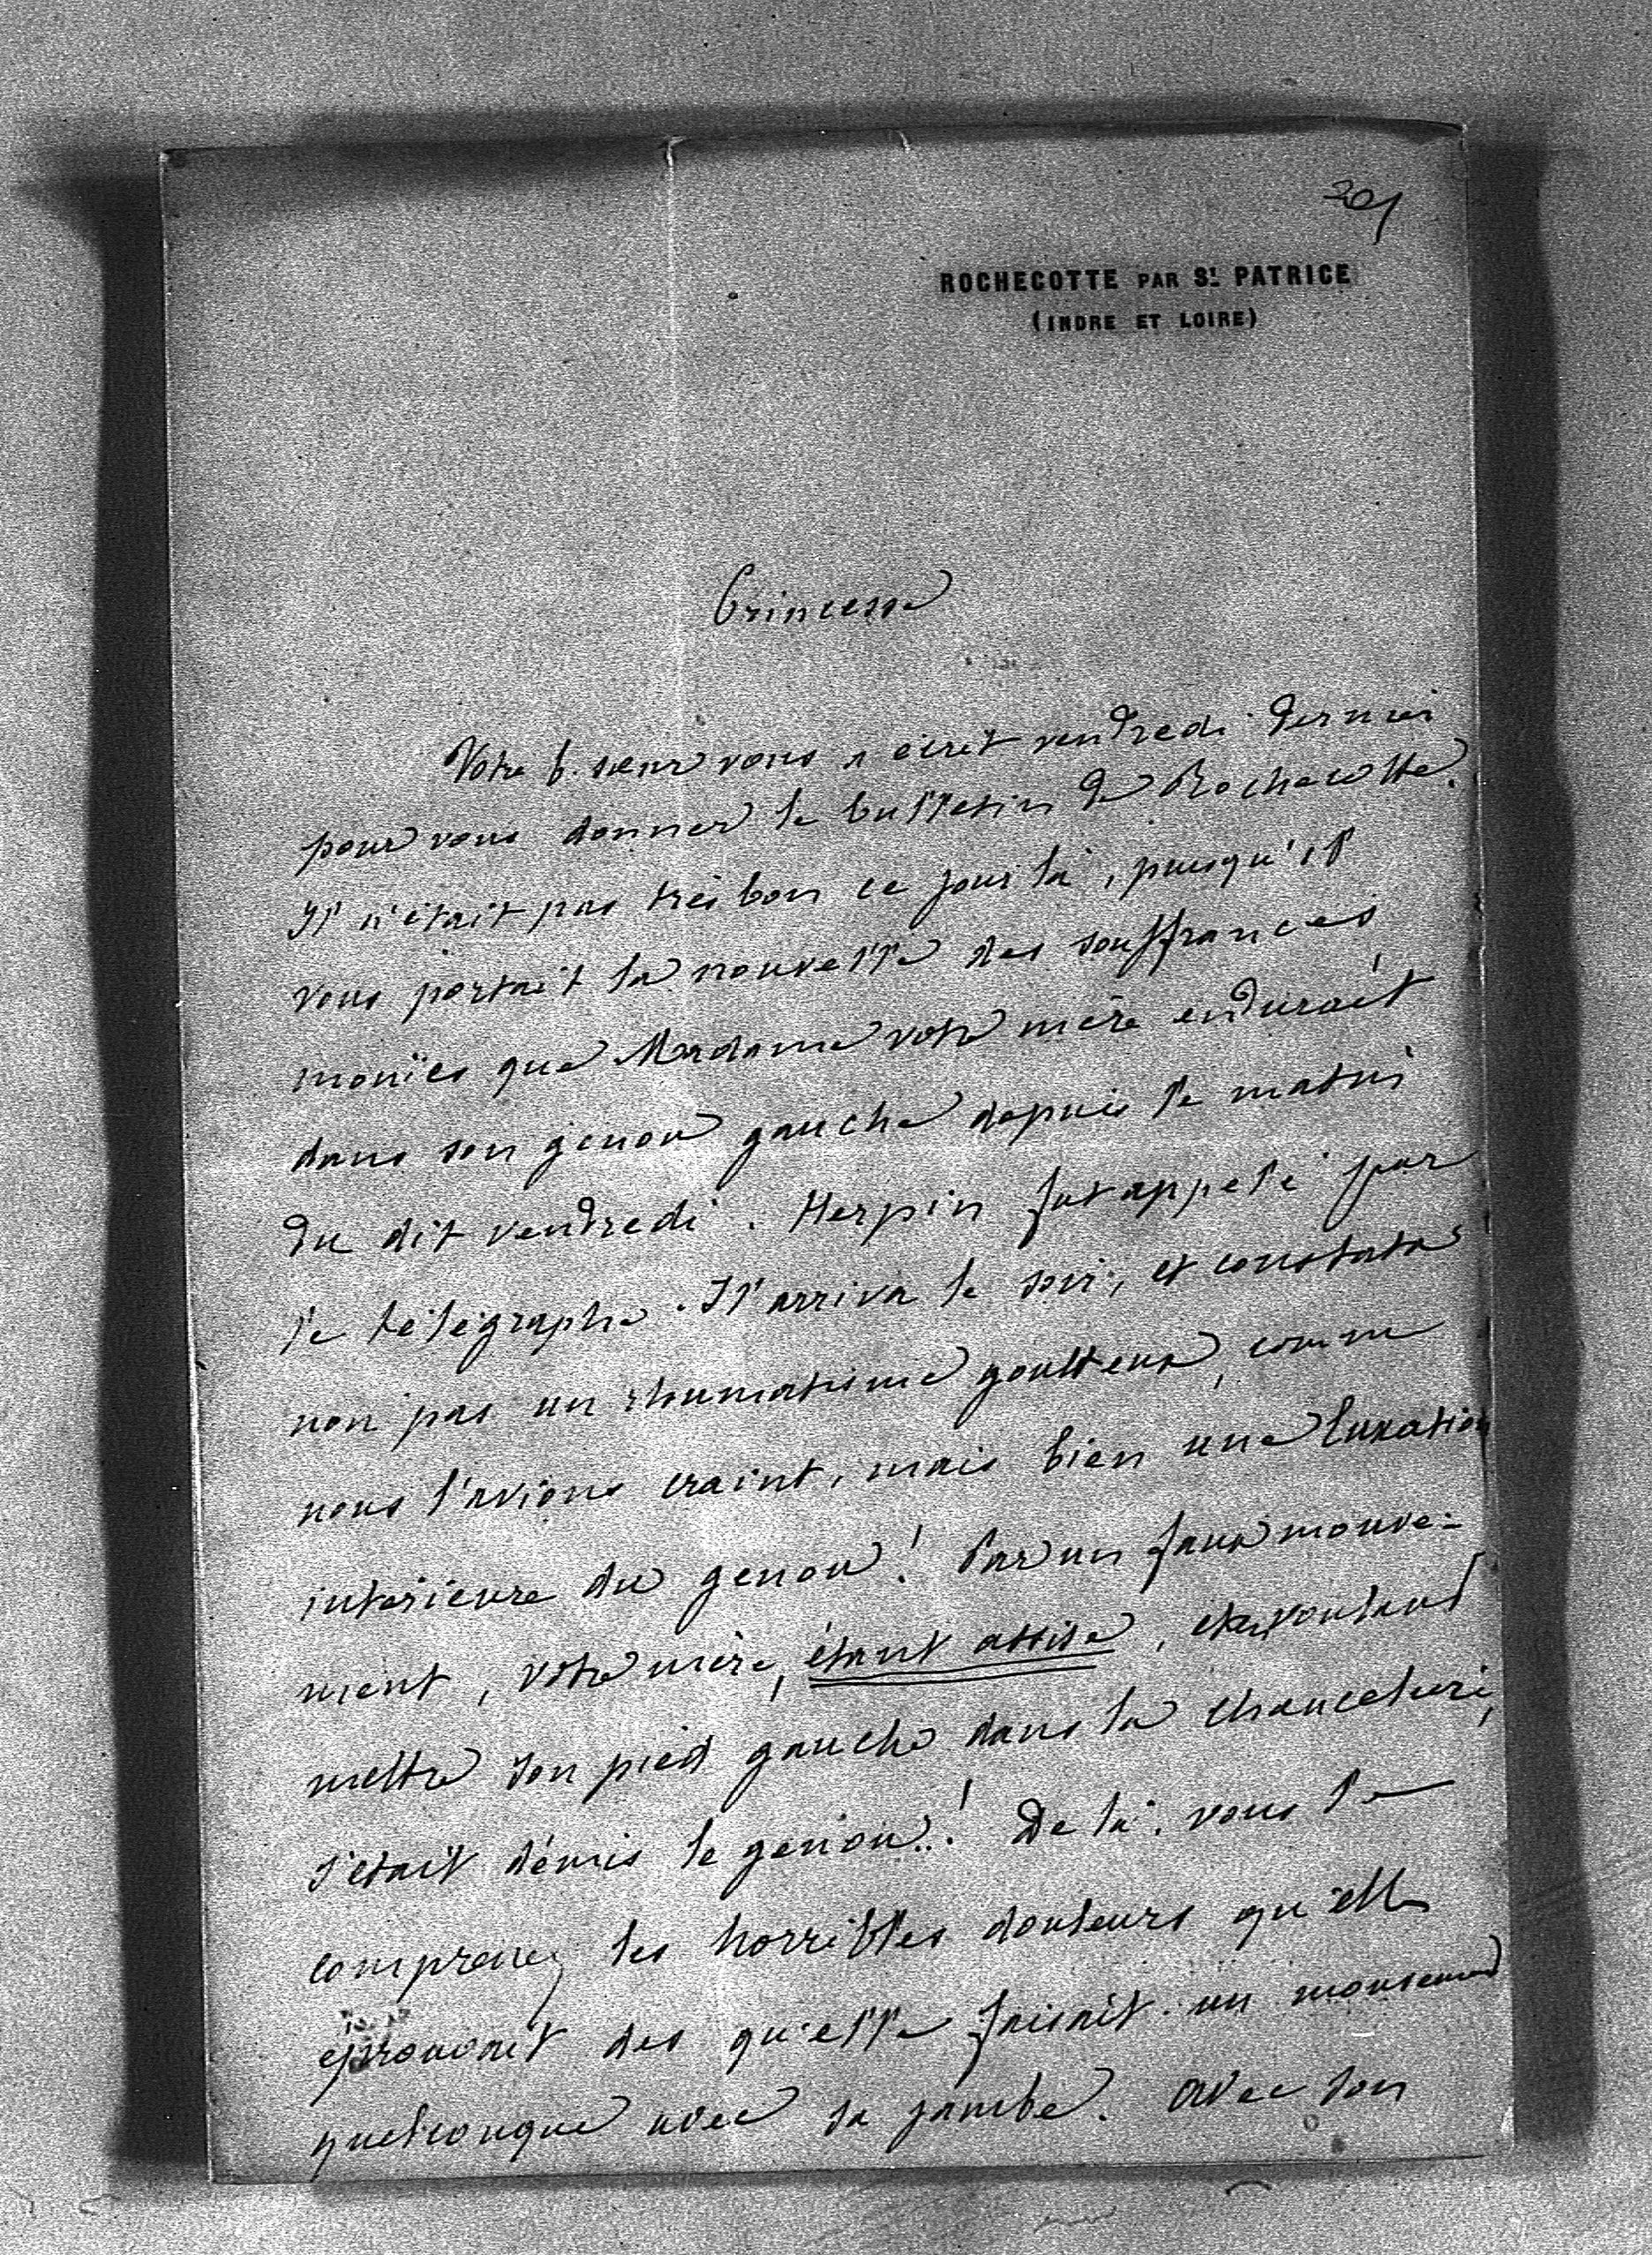 201
ROCHECOTTE PAR St PATRICE
(INDRE ET LOIRE)
Princesse
Votre b. sœur vous a écrit vendredi dernier
pour vous donner le bulletin de Rochecotte.
Il n'était pas très bon ce jour là, puisqu'il
vous portait la nouvelle des souffrances
inouïes que Madame votre mère endurait
dans son genou gauche depuis le matin
du dit vendredi. Herpin fut appelé par
le télégraphe. Il arriva le soir, et constata
non pas un rhumatisme goutteux, comme
nous l'avions craint, mais bien une luxation
intérieure du genou! Par un faux mouve-
ment, votre mère, étant assise, et en voulant
mettre son pied gauche dans la chancelière,
s'était démis le genou!. De là, vous le
comprenez les horribles douleurs qu'elle
eprouvait des qu'elle faisait un mouvement
quelconque avec sa jambe. Avec son